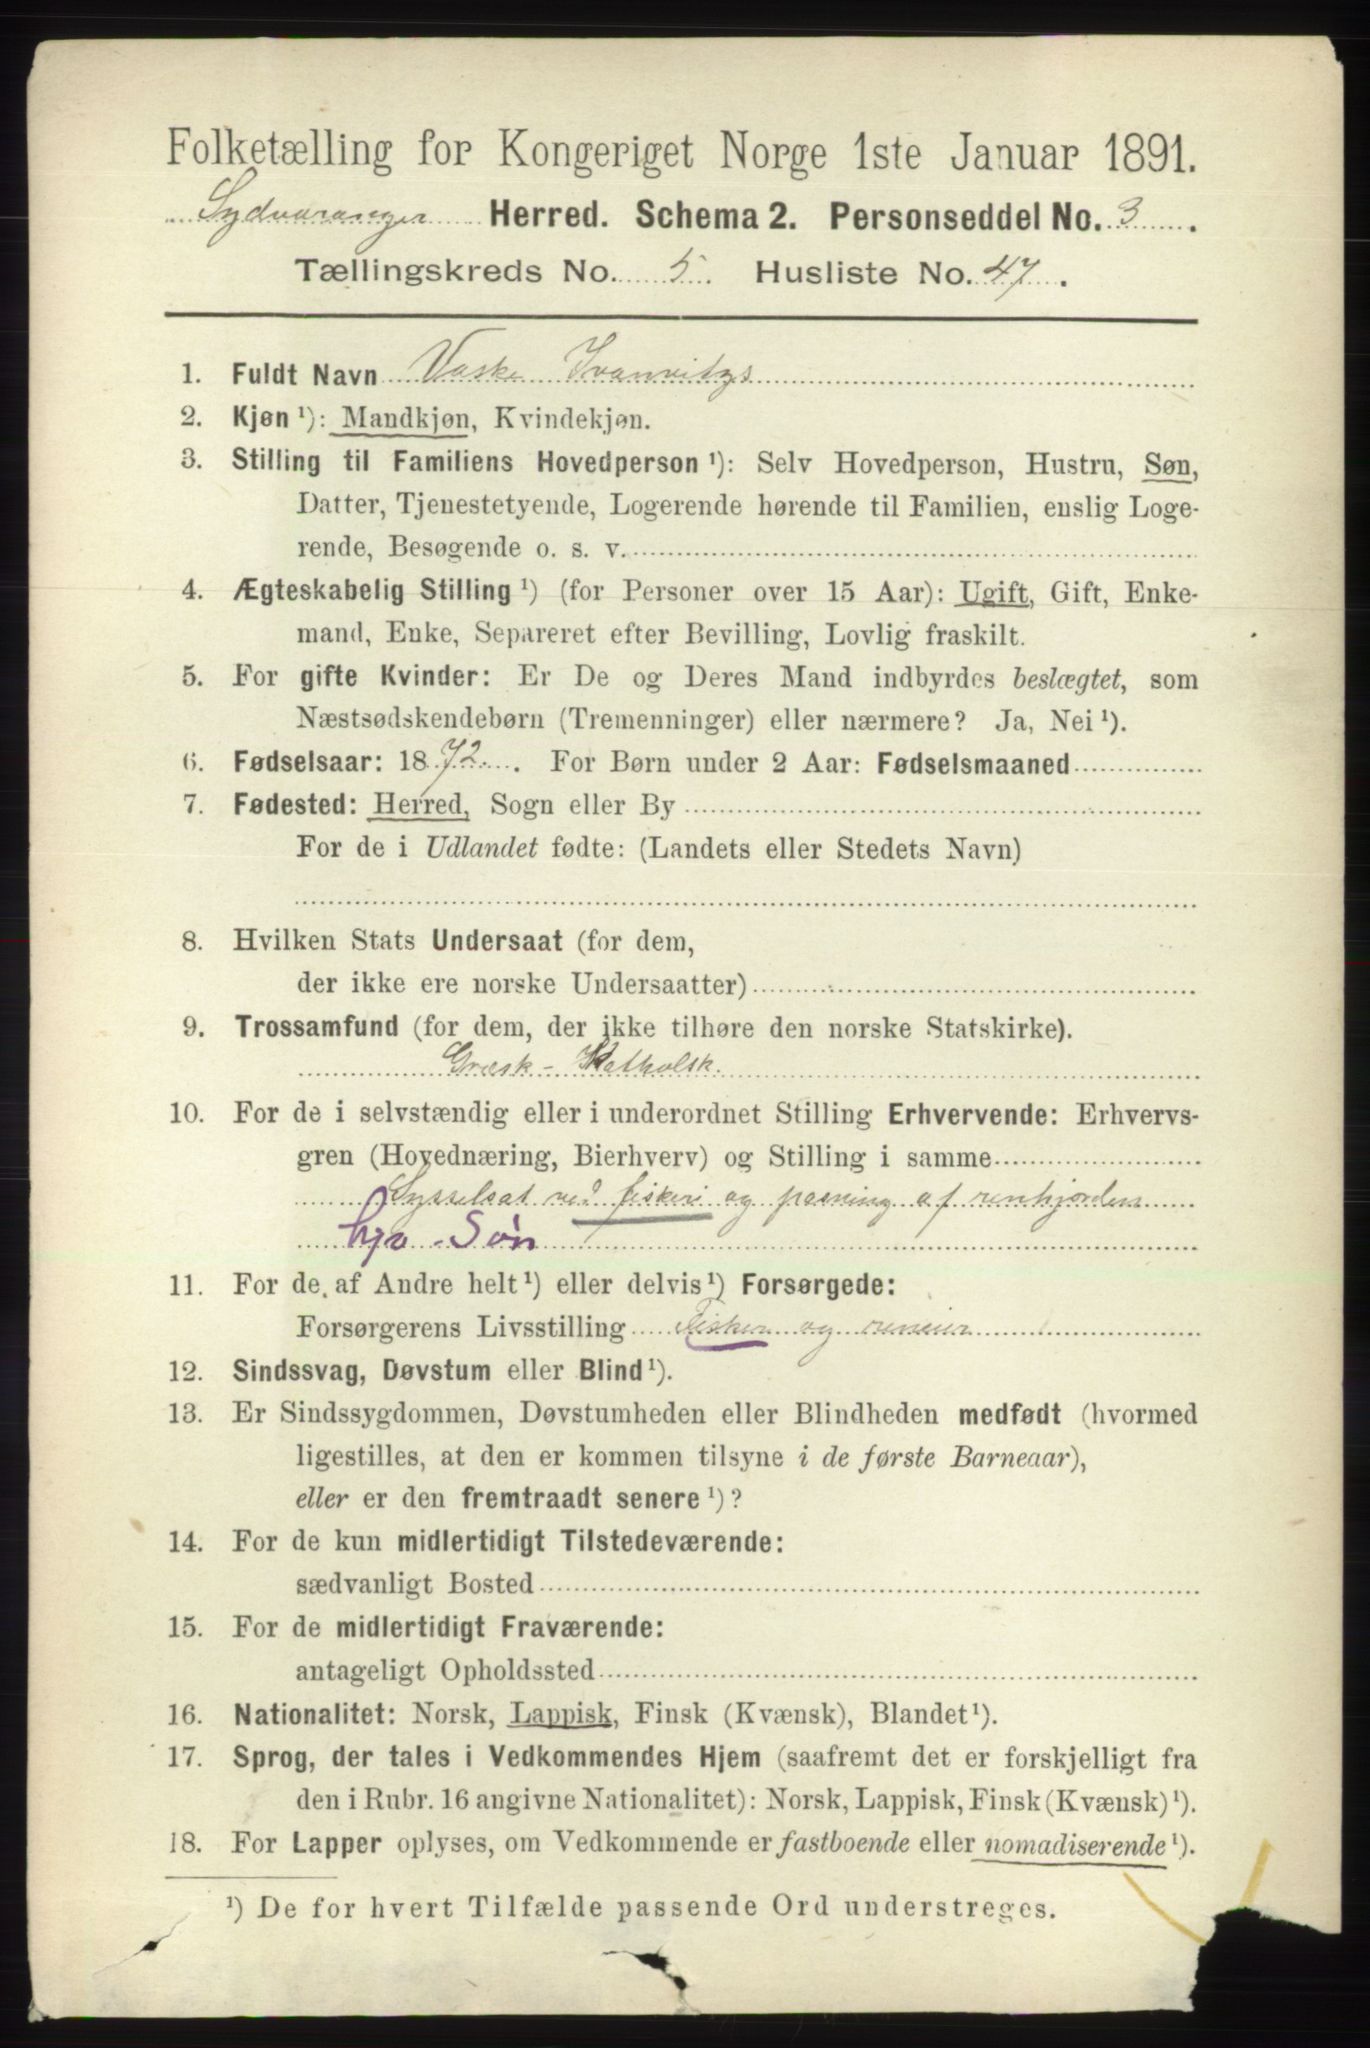 Folketælling for Kongeriget Norge 1ste Januar 1891.
Sydvaranger Herred. Schema 2. Personseddel No. 3.
Tællingskreds No. 5. Husliste No. 47.
1. Fuldt Navn Vaske Ivanvitzs
2. Kjøn ¹): Mandkjøn, Kvindekjøn.
3. Stilling til Familiens Hovedperson ¹): Selv Hovedperson, Hustru, Søn,
Datter, Tjenestetyende, Logerende hørende til Familien, enslig Loge-
rende, Besøgende o. s. v.
4. Ægteskabelig Stilling ¹) (for Personer over 15 Aar): Ugift, Gift, Enke-
mand, Enke, Separeret efter Bevilling, Lovlig fraskilt.
5. For gifte Kvinder: Er De og Deres Mand indbyrdes beslægtet, som
Næstsødskendebørn (Tremenninger) eller nærmere? Ja, Nei ¹).
6. Fødselsaar: 1872. For Børn under 2 Aar: Fødselsmaaned
7. Fødested: Herred, Sogn eller By
For de i Udlandet fødte: (Landets eller Stedets Navn)
8. Hvilken Stats Undersaat (for dem,
der ikke ere norske Undersaatter)
9. Trossamfund (for dem, der ikke tilhøre den norske Statskirke).
Græsk-Katholsk.
10. For de i selvstændig eller i underordnet Stilling Erhvervende: Erhvervs-
gren (Hovednæring, Bierhverv) og Stilling i samme
Sysselsat ved fiskeri og pasning af renhjorden
hjv. Søn
11. For de af Andre helt ¹) eller delvis ¹) Forsørgede:
Forsørgerens Livsstilling Fisker og reneier
12. Sindssvag, Døvstum eller Blind ¹).
13. Er Sindssygdommen, Døvstumheden eller Blindheden medfødt (hvormed
ligestilles, at den er kommen tilsyne i de første Barneaar),
eller er den fremtraadt senere ¹)?
14. For de kun midlertidigt Tilstedeværende:
sædvanligt Bosted
15. For de midlertidigt Fraværende:
antageligt Opholdssted
16. Nationalitet: Norsk, Lappisk, Finsk (Kvænsk), Blandet ¹).
17. Sprog, der tales i Vedkommendes Hjem (saafremt det er forskjelligt fra
den i Rubr. 16 angivne Nationalitet): Norsk, Lappisk, Finsk (Kvænsk) ¹).
18. For Lapper oplyses, om Vedkommende er fastboende eller nomadiserende ¹).
¹) De for hvert Tilfælde passende Ord understreges.